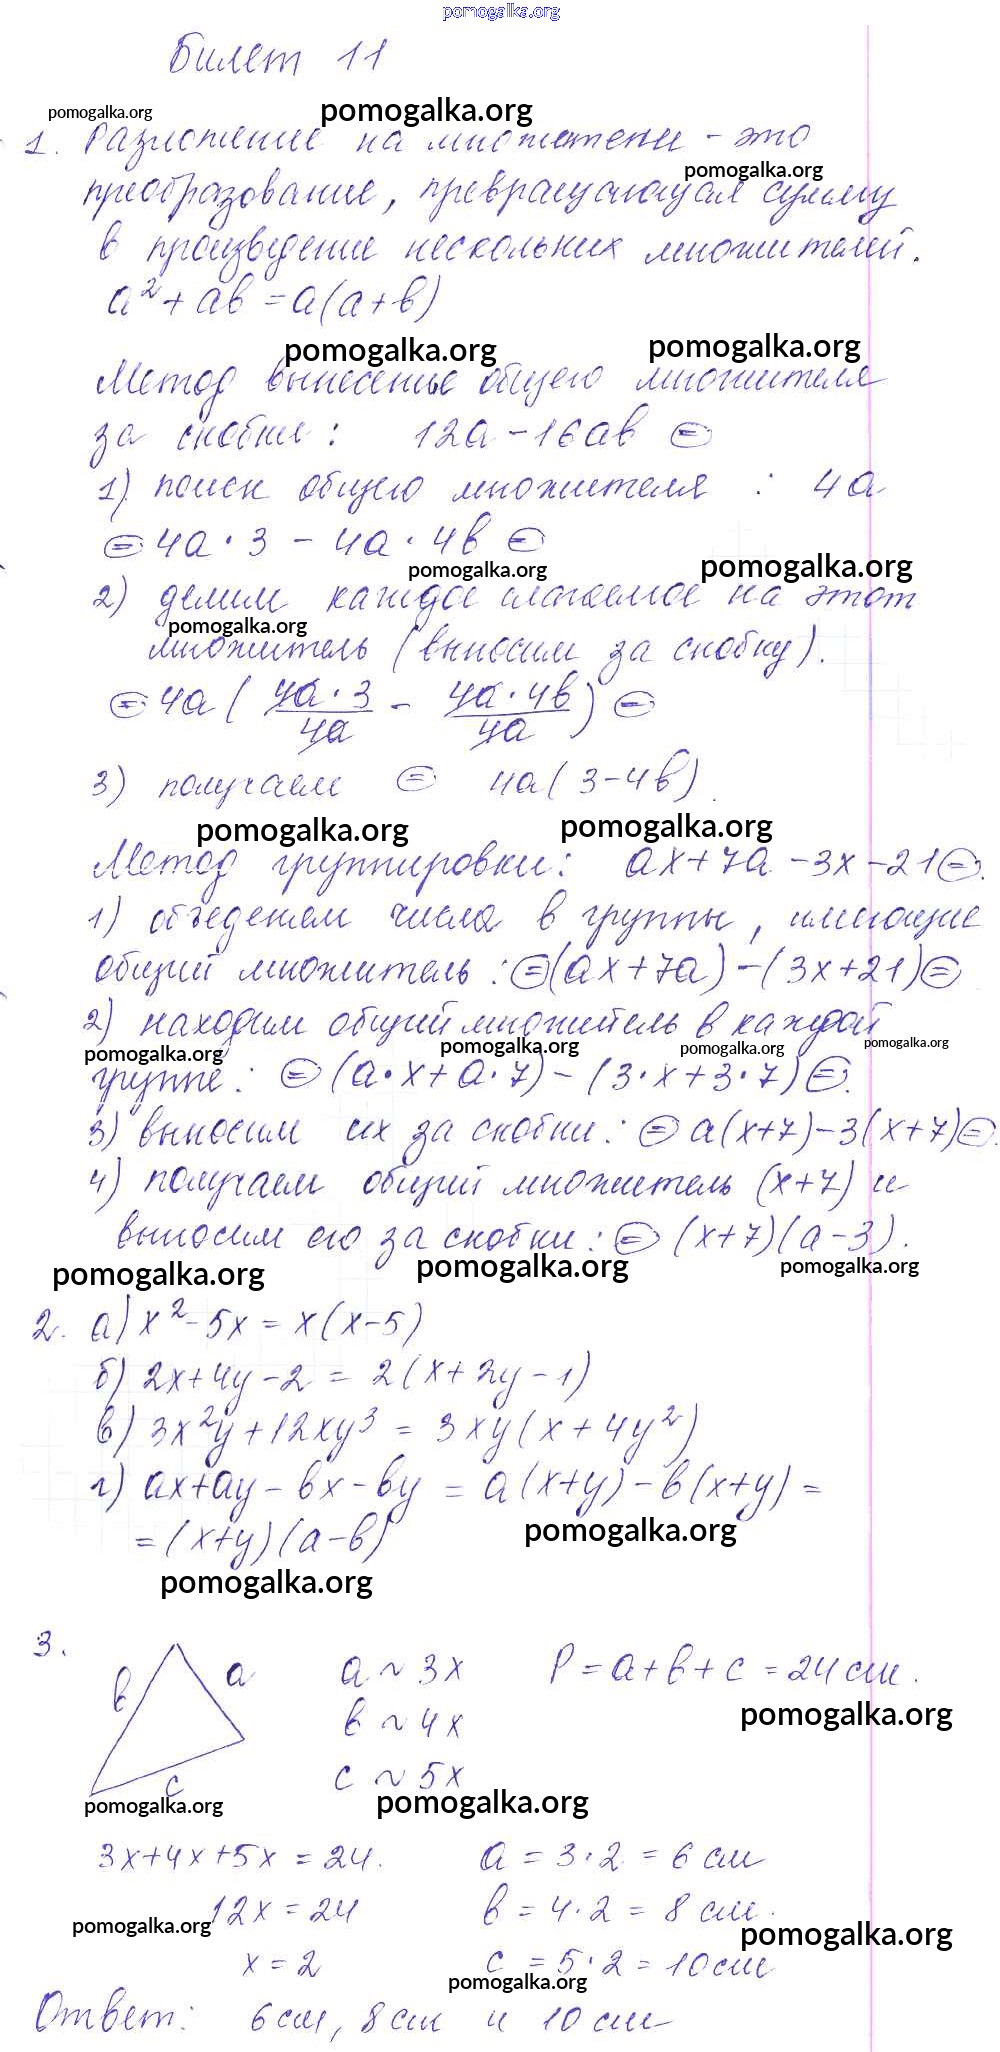 pomogalka.org
Билет 11
pomogalka.org pomogalka.org
1. Разложение на множители - это
pomogalka.org
преобразование, превращающая сумму
в произведение нескольких множителей.
a² + ab = a(a+b)
pomogalka.org pomogalka.org
Метод вынесенье общего множителя
за скобки: 12a - 16ab =
1) поиск общего множителя : 4a
= 4a · 3 - 4a · 4b =
pomogalka.org pomogalka.org
2) делим каждое слагаемое на этот
pomogalka.org
множитель (выносим за скобку).
= 4a ( 4a · 3 / 4a - 4a · 4b / 4a ) =
3) получаем = 4a( 3 - 4b).
pomogalka.org pomogalka.org
Метод группировки: ax + 7a - 3x - 21 =.
1) объеденяем числа в группы, имеющие
общий множитель: = (ax + 7a) - (3x + 21) =
2) находим общий множитель в каждой
pomogalka.org pomogalka.org pomogalka.org pomogalka.org
группе: = (a · x + a · 7) - (3 · x + 3 · 7) =.
3) выносим их за скобки: = a(x+7) - 3(x+7) =.
4) получаем общий множитель (x+7) и
выносим его за скобки: = (x+7)(a-3).
pomogalka.org pomogalka.org pomogalka.org
2. а) x² - 5x = x(x-5)
б) 2x + 4y - 2 = 2(x + 2y - 1)
в) 3x²y + 12xy³ = 3xy(x + 4y²)
г) ax + ay - bx - by = a(x+y) - b(x+y) =
= (x+y)(a-b)
pomogalka.org
pomogalka.org
3.
b a a ~ 3x P = a + b + c = 24 см.
pomogalka.org
b ~ 4x
c c ~ 5x
pomogalka.org pomogalka.org
3x + 4x + 5x = 24. a = 3 · 2 = 6 см
12x = 24 b = 4 · 2 = 8 см.
pomogalka.org pomogalka.org
x = 2 c = 5 · 2 = 10 см
pomogalka.org
Ответ: 6 см, 8 см и 10 см